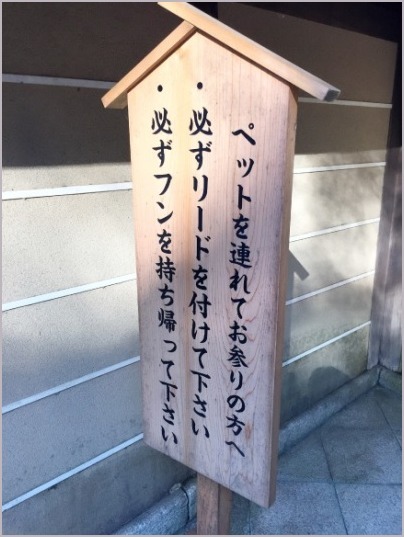 ペットを連れてお参りの方へ
・必ずリードを付けて下さい
・必ずフンを持ち帰って下さい